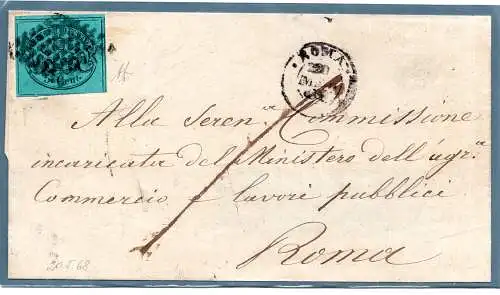 Cent.
ROMA
Alla Seren.ᵃ Commissione
incaricata del Ministero dell'agr.ᵃ
Commercio e lavori pubblici
Roma
20.5.68